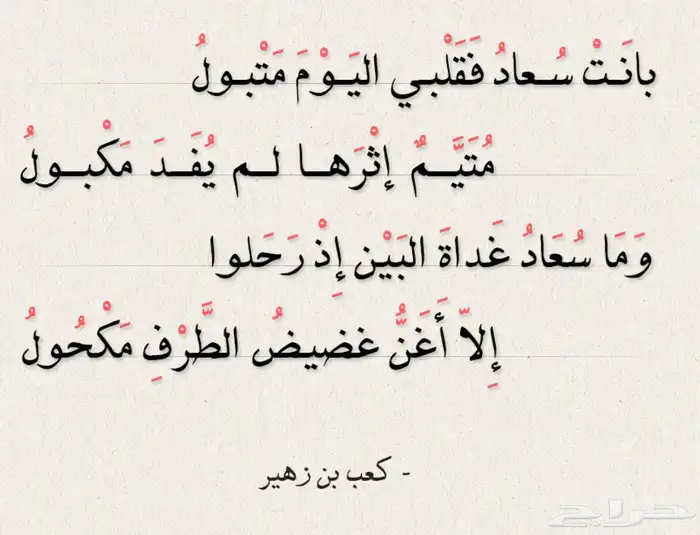 بانَتْ سُعادُ فَقَلْبي اليَوْمَ مَتْبولُ
مُتَيَّمٌ إِثْرَها لم يُفَدَ مَكْبولُ
وَمَا سُعَادُ غَداةَ البَيْنِ إِذْ رَحَلوا
إِلاّ أَغَنُّ غضيضُ الطَّرْفِ مَكْحُولُ
- كعب بن زهير
حراج